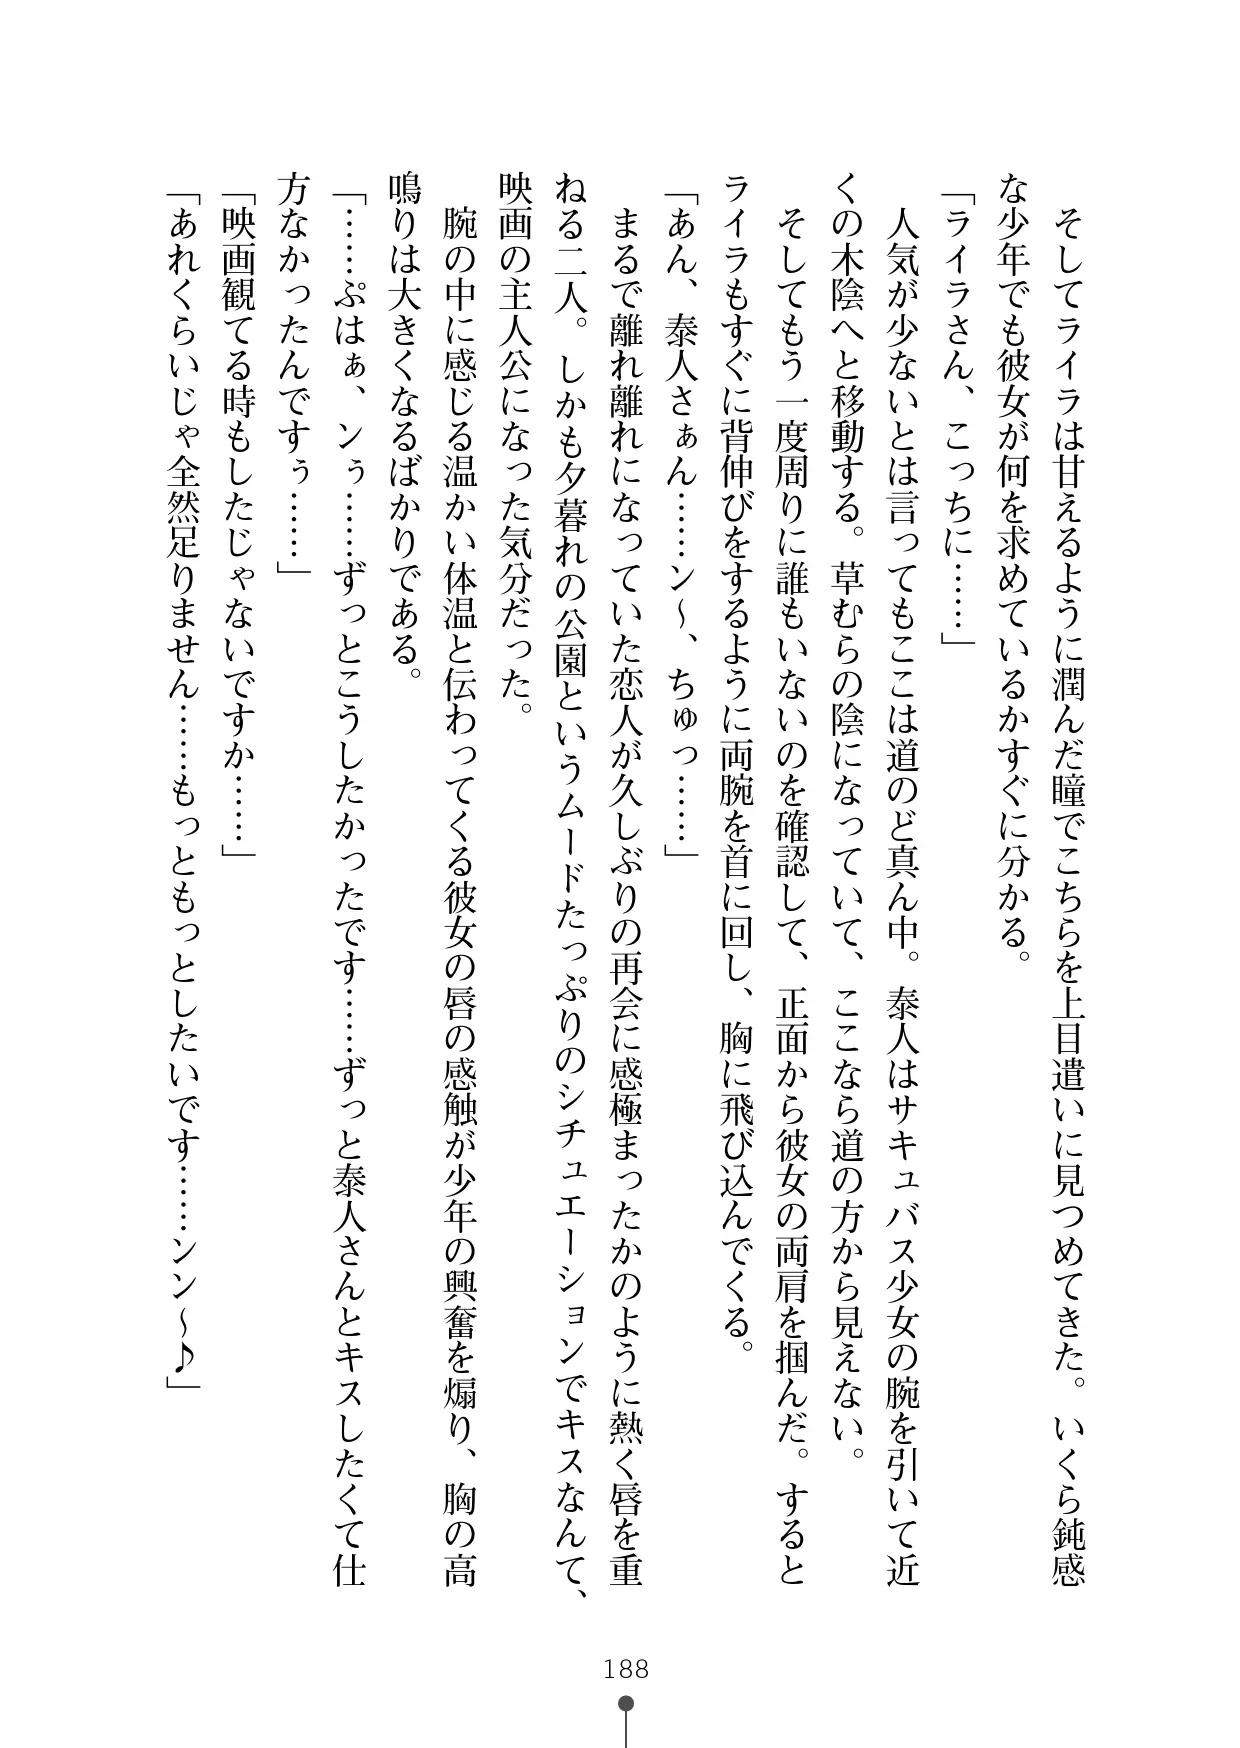 そしてライラは甘えるように潤んだ瞳でこちらを上目遣いに見つめてきた。いくら鈍感
な少年でも彼女が何を求めているかすぐに分かる。
「ライラさん、こっちに……」
　人気が少ないとは言ってもここは道のど真ん中。泰人はサキュバス少女の腕を引いて近
くの木陰へと移動する。草むらの陰になっていて、ここなら道の方から見えない。
　そしてもう一度周りに誰もいないのを確認して、正面から彼女の両肩を掴んだ。すると
ライラもすぐに背伸びをするように両腕を首に回し、胸に飛び込んでくる。
「あん、泰人さぁん……ン～、ちゅっ……」
　まるで離れ離れになっていた恋人が久しぶりの再会に感極まったかのように熱く唇を重
ねる二人。しかも夕暮れの公園というムードたっぷりのシチュエーションでキスなんて、
映画の主人公になった気分だった。
　腕の中に感じる温かい体温と伝わってくる彼女の唇の感触が少年の興奮を煽り、胸の高
鳴りは大きくなるばかりである。
「……ぷはぁ、ンぅ……ずっとこうしたかったです……ずっと泰人さんとキスしたくて仕
方なかったんですぅ……」
「映画観てる時もしたじゃないですか……」
「あれくらいじゃ全然足りません……もっともっとしたいです……ンン～♪」
188